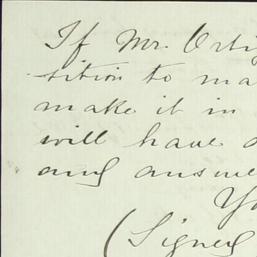 If Mr. Orti
sition to ma
make it in
will have a
any answe
Yo
(Signed